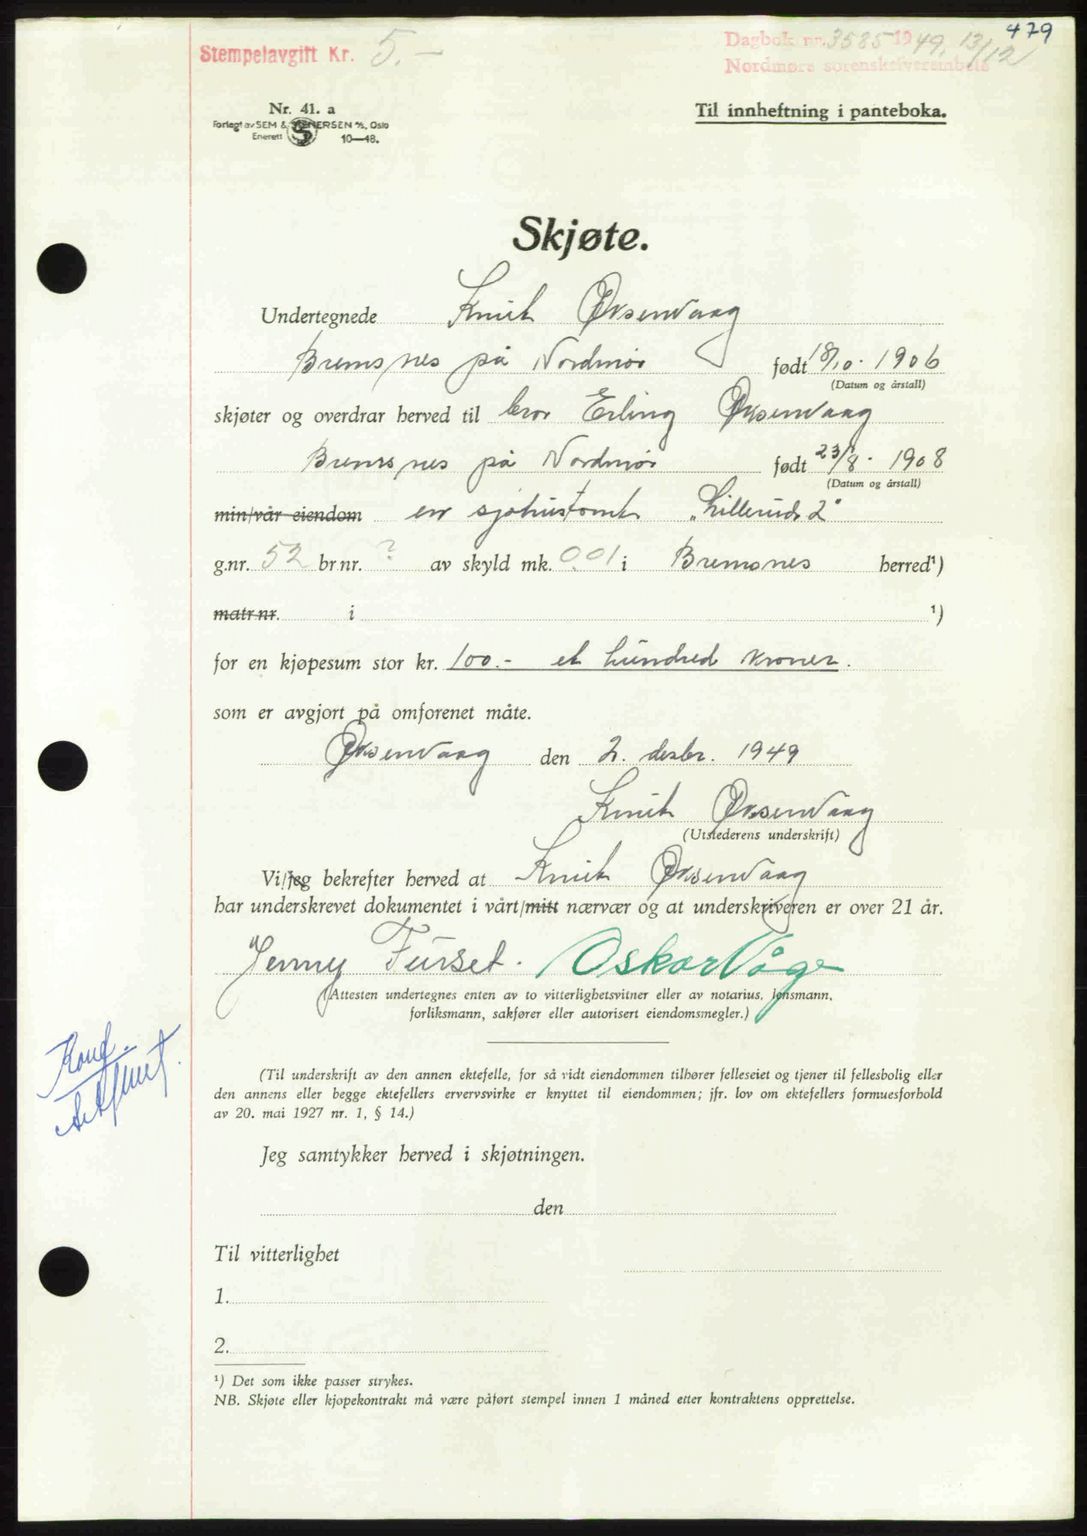 479
Stempelavgift Kr. 5.-
Dagbok nr. 3585 1949. 13/12
Nordmøre sorenskriverembete
Nr. 41. a
Forlagt av SEM & STENERSEN A/S, Oslo
Enerett 10—48.
Til innheftning i panteboka.
Skjøte.
Undertegnede Knut Øksenvaag
Bremsnes på Nordmør født 18/10. 1906
(Datum og årstall)
skjøter og overdrar herved til bror Erling Øksenvaag
Bremsnes på Nordmør født 23/8. 1908
(Datum og årstall)
min/vår eiendom en sjøhustomt "Lillerud 2"
g.nr. 52 br.nr. ? av skyld mk. 0.01 i Bremsnes herred¹)
matr.nr. i ¹)
for en kjøpesum stor kr. 100.- et hundred kroner.
som er avgjort på omforenet måte.
Øksenvaag den 2. desbr. 1949
Knut Øksenvåag
(Utstederens underskrift)
Vi/jeg bekrefter herved at Knut Øksenvåag
har underskrevet dokumentet i vårt/mitt nærvær og at underskriveren er over 21 år.
Jenny Furset. Oskar Våge
(Attesten undertegnes enten av to vitterlighetsvitner eller av notarius, lensmann,
forliksmann, sakfører eller autorisert eiendomsmegler.)
(Til underskrift av den annen ektefelle, for så vidt eiendommen tilhører felleseiet og tjener til fellesbolig eller
den annens eller begge ektefellers ervervsvirke er knyttet til eiendommen; jfr. lov om ektefellers formuesforhold
av 20. mai 1927 nr. 1, § 14.)
Jeg samtykker herved i skjøtningen.
den
Til vitterlighet
1.
2.
¹) Det som ikke passer strykes.
NB. Skjøte eller kjøpekontrakt må være påført stempel innen 1 måned etter kontraktens opprettelse.